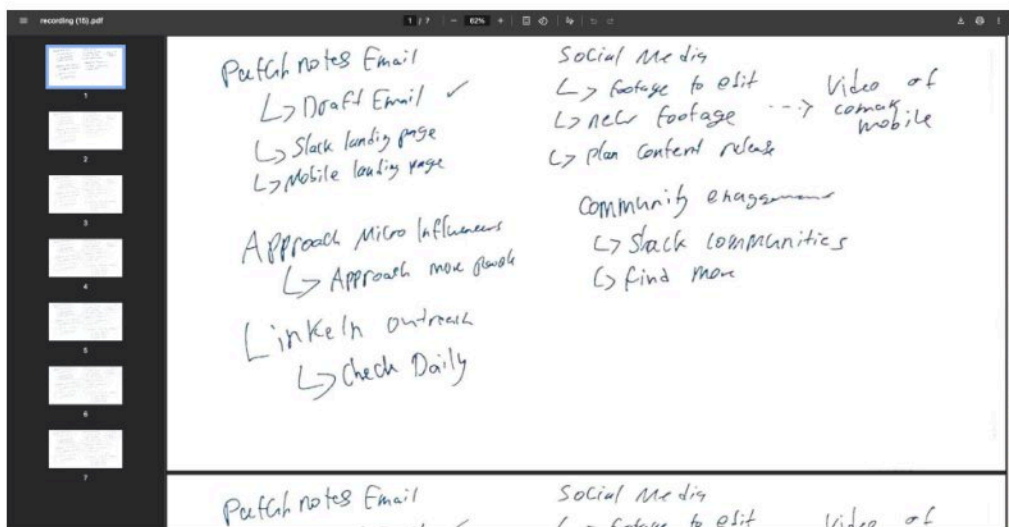 recording (15).pdf
1 / 7
62%
Patch notes Email
↳ Draft Email ✓
↳ Slack landig page
↳ Mobile landig page
Approach Micro Influencers
↳ Approach more
LinkeIn outreach
↳ Check Daily
Social Media
↳ footage to edit
↳ new footage ...> Video of
mobile
↳ plan content release
Community
↳ Slack communities
↳ find more
1
2
3
4
5
6
7
Patch notes Email
Social Media
↳ footage to edit
Video of